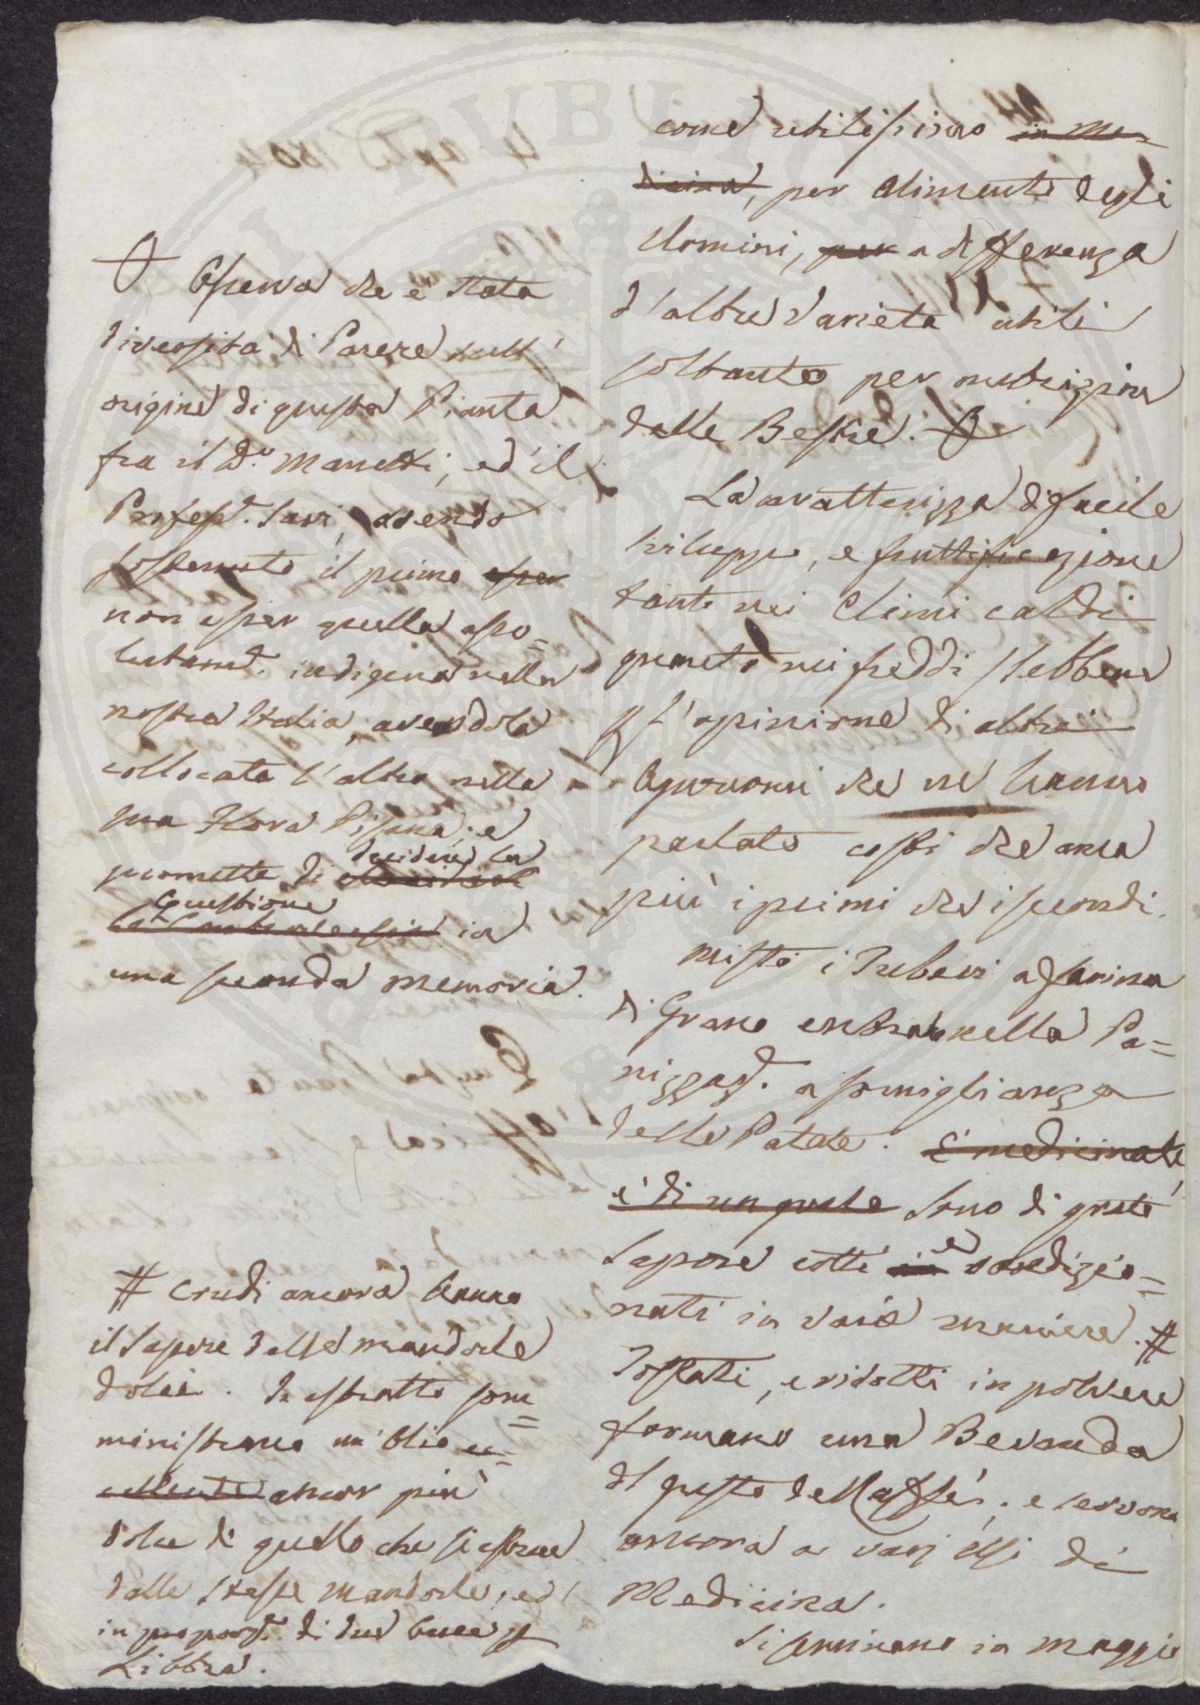 come utilissimo in Me-
dicina, per alimento degli
Uomini, per a differenza
d'altre varietà utili
soltanto per nutrizione
delle Bestie.
La caratterizza di facile
sviluppo, e fruttificazione
tanto nei Climi caldi
quanto nei freddi sebbene
l'opinione di altri
Agronomi che ne hanno
parlato così che ama
più i primi che i secondi.
Misti i Tuberi a farina
di Grano entran nella Pa=
nizzaz.e a somiglianza
delle Patate. E medicinale
e di un gusto Sono di grato
sapore cotti in e condizio=
nati in varie maniere. #
Tostati, e ridotti in polvere
formano una Bevanda
al gusto del Caffé; e servono
ancora a varj usi di
Medicina.
Si seminano in Maggio
Osserva che è stata
diversità di Parere sull'
origine di questa Pianta
fra il D.r Manetti, ed il
Profess.e Savi, avendo
sostenuto il primo esser
non esser quella asso=
lutam.e indigena nella
nostra Italia, avendola
collocata l'altro nella
sua Flora Pisana; e
decidere la
promette di
Questione
in
una seconda memoria.
# Crudi ancora hanno
il sapore delle mandorle
dolci. In estratto som=
ministrano un'Olio ec=
cellente ancor più
dolce di quello che si estrae
dalle stesse Mandorle; ed
in proporz.e di due once
Libbra.